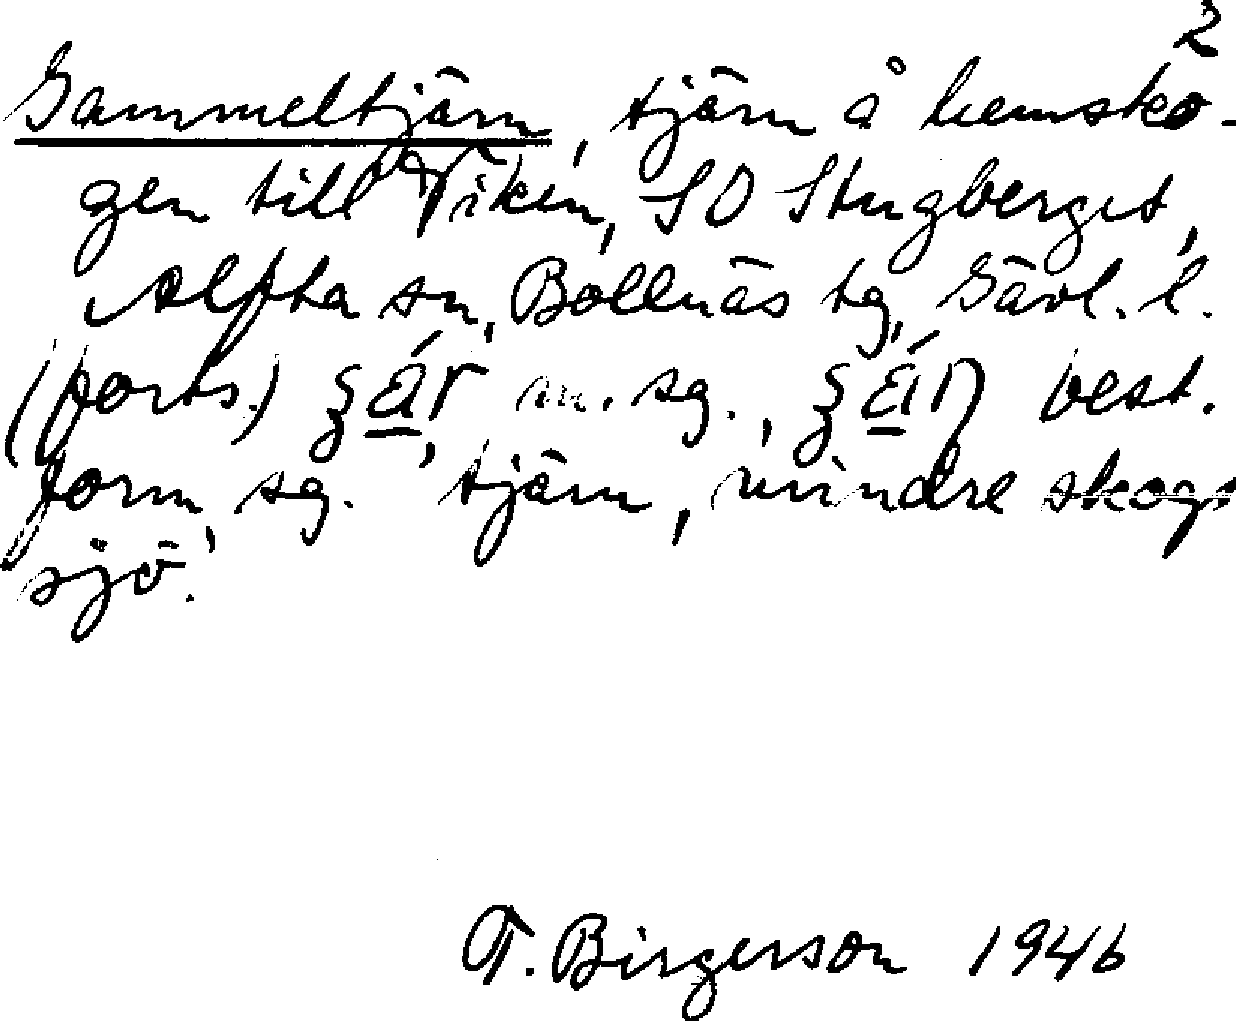 2
Gammeltjärn, tjärn å hemsko-
gen till Viken, SO Stugberget,
Alfta sn, Bollnäs tg, Gävl. l.
(forts.) m. sg., best.
form, sg. tjärn, mindre skogs
sjö.
T. Birgerson 1946